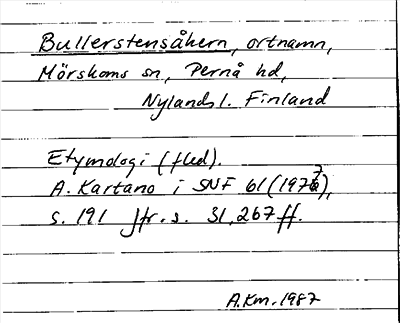 Bullerstensåkern, ortnamn,
Mörskoms sn, Pernå hd,
Nylands l. Finland
Etymologi (fled).
A. Kartano i SNF 61 (1977),
s. 191 Jfr. s. 31, 267 ff.
A.Km. 1987